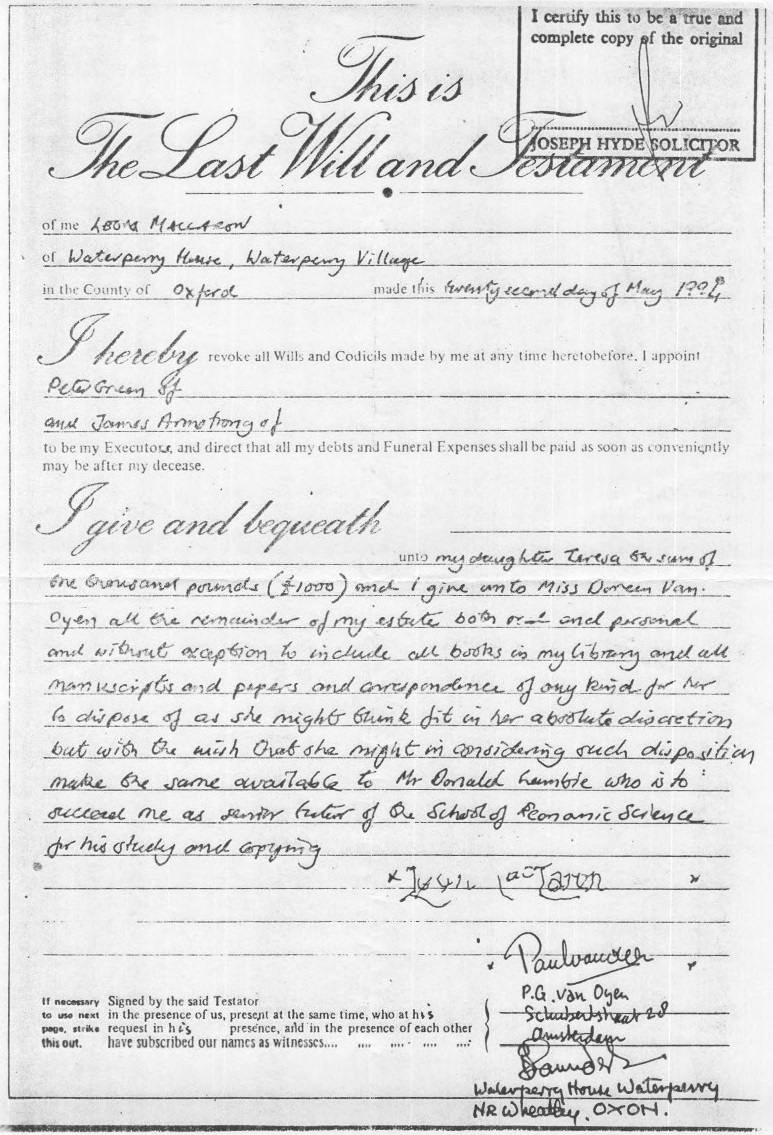 I certify this to be a true and
complete copy of the original
JOSEPH HYDE SOLICITOR
This is
The Last Will and Testament
of me Leon MacLaren
of Waterperry House, Waterperry Village
in the County of Oxford made this twenty second day of May 1994
I hereby revoke all Wills and Codicils made by me at any time heretobefore. I appoint
Peter Green of
and James Armstrong of
to be my Executors, and direct that all my debts and Funeral Expenses shall be paid as soon as conveniently
may be after my decease.
I give and bequeath
unto my daughter Teresa the sum of
one thousand pounds (£1000) and I give unto Miss Doreen Van
Oyen all the remainder of my estate both and personal
and without exception to include all books in my library and all
manuscripts and papers and correspondence of any kind for her
to dispose of as she might think fit in her absolute discretion
but with the wish that she might in considering such disposition
make the same available to Mr Donald Lambie who is to
succeed me as senior tutor of the School of Economic Science
for his study and copying
P.G. Van Oyen
Schubertstraat 28
Amsterdam
Waterperry House Waterperry
NR Wheatley, OXON.
If necessary
to use next
page, strike
this out.
Signed by the said Testator
in the presence of us, present at the same time, who at his
request in his presence, and in the presence of each other
have subscribed our names as witnesses....